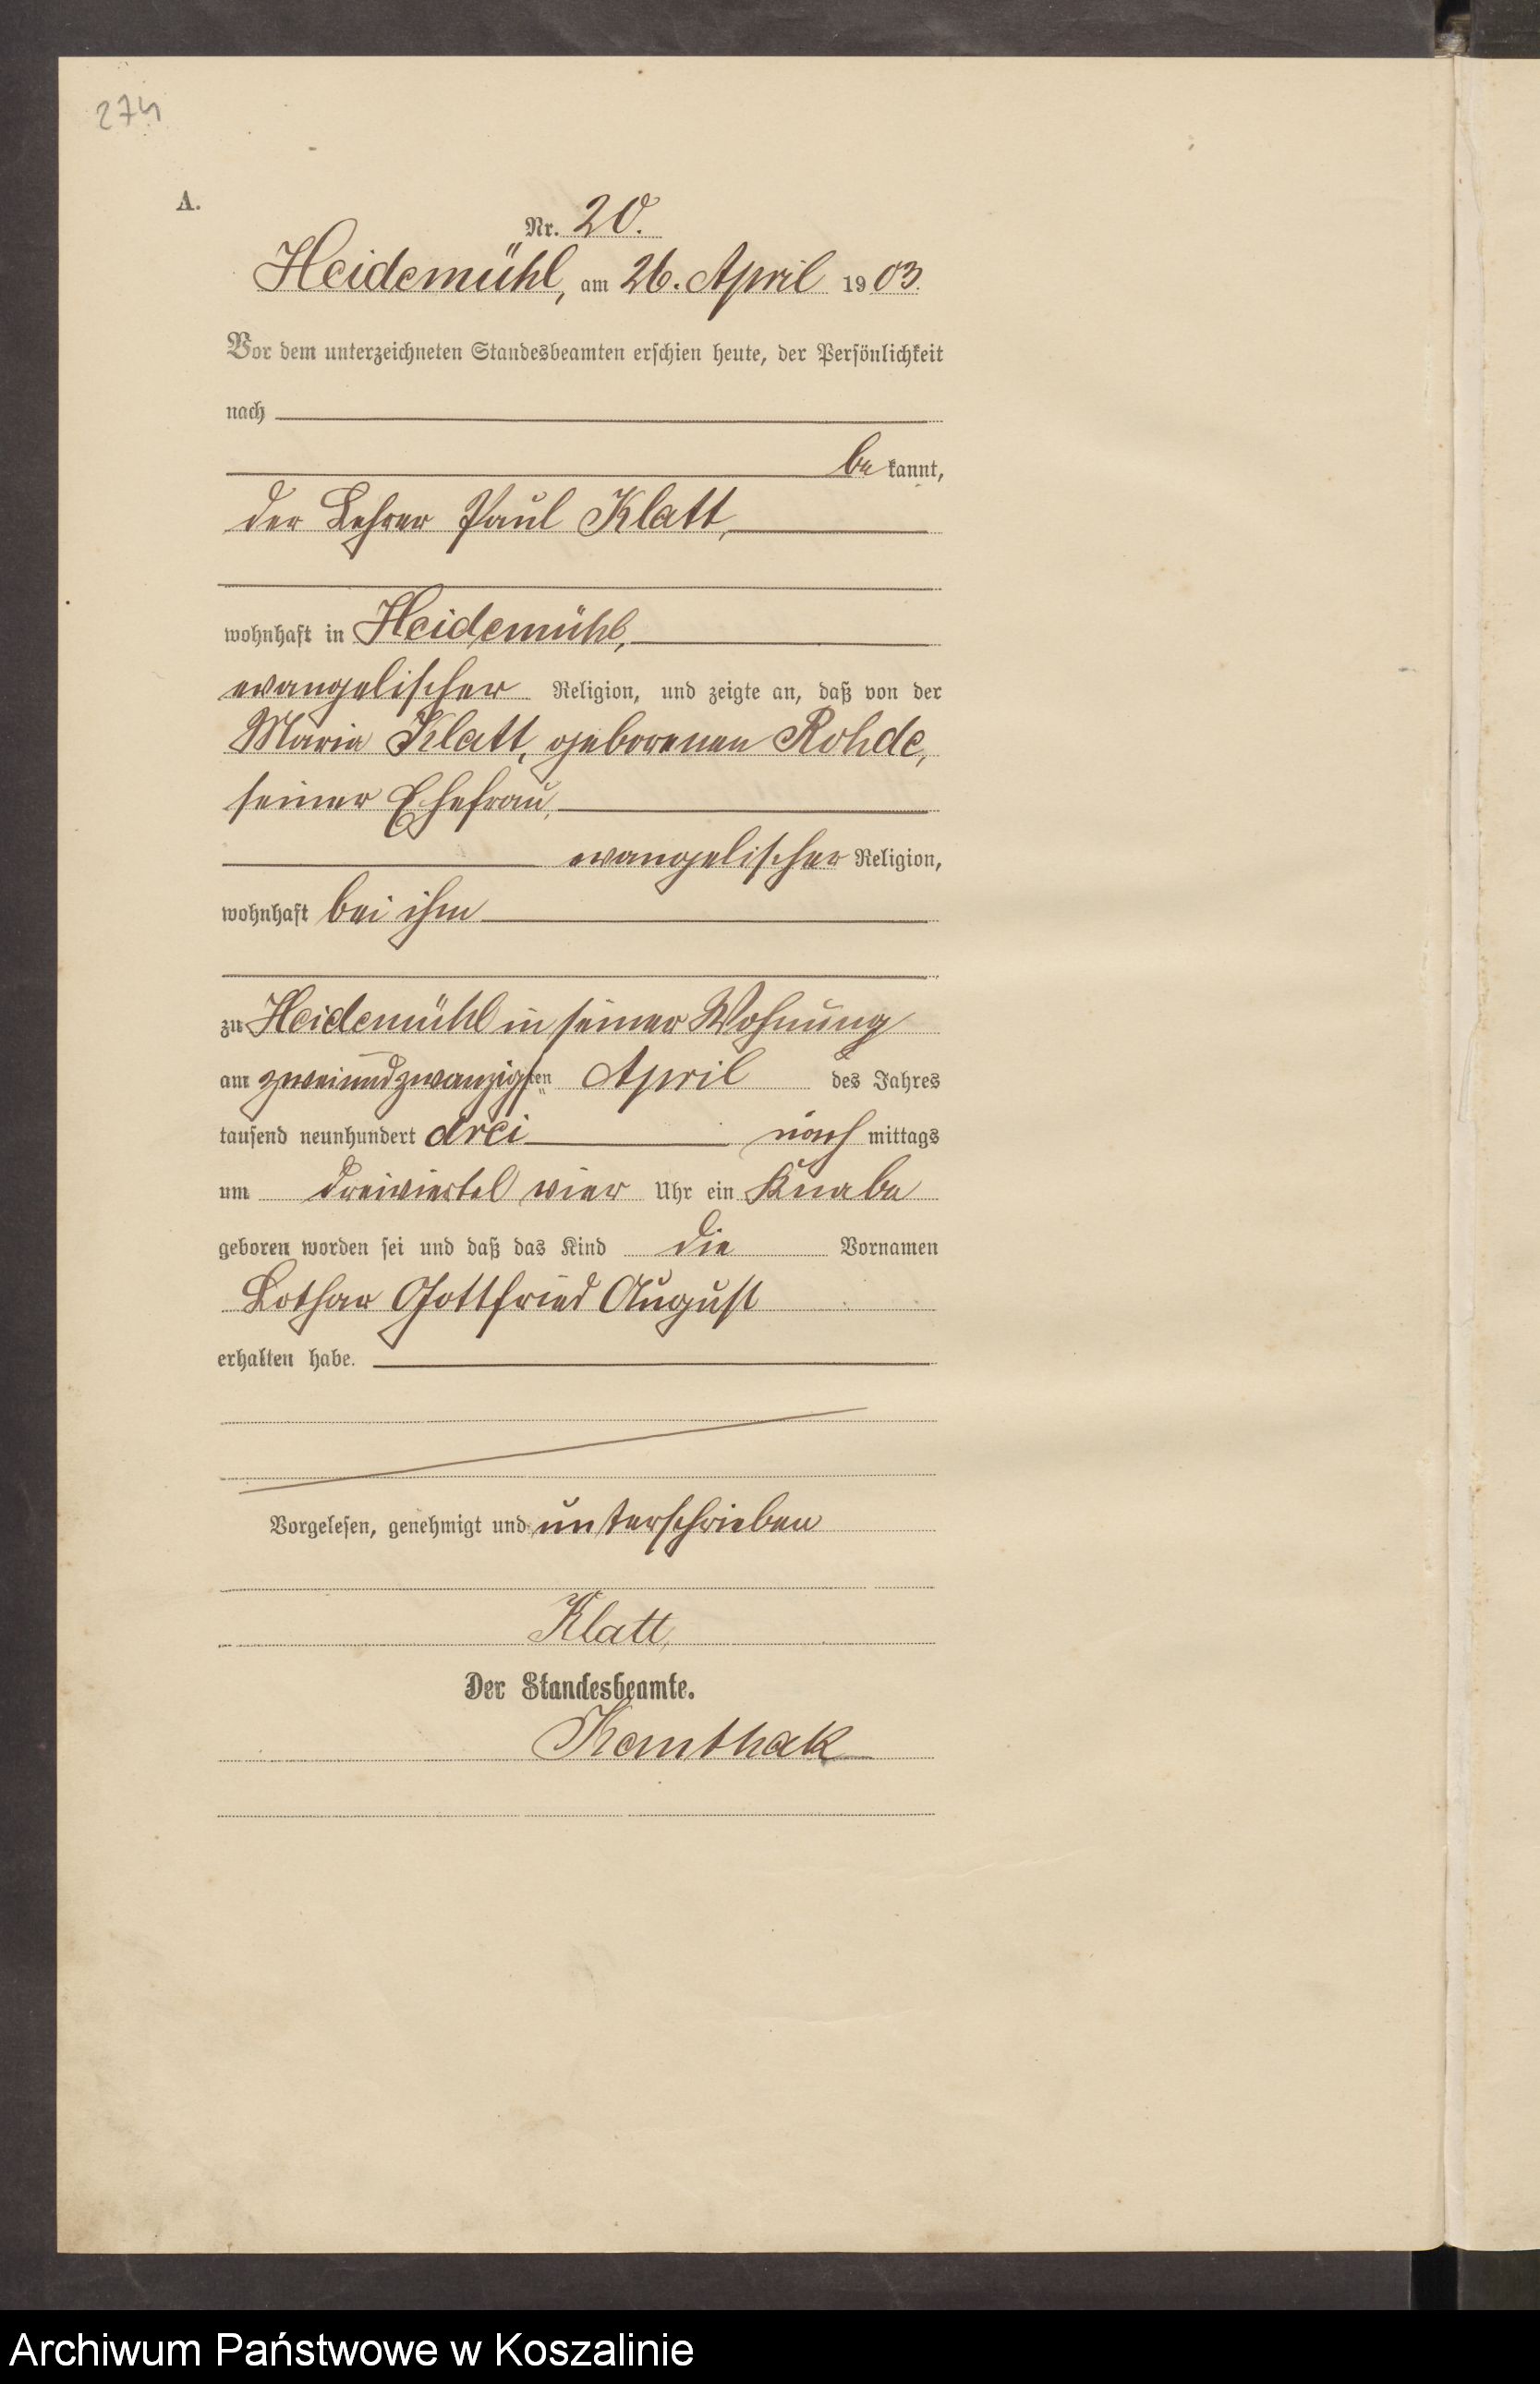 274
A.
Nr. 20.
Heidemühl, am 26. April 1903.
Vor dem unterzeichneten Standesbeamten erschien heute, der Persönlichkeit
nach
be kannt,
der Lehrer Paul Klatt,
wohnhaft in Heidemühl,
evangelischer Religion, und zeigte an, daß von der
Maria Klatt, geborenen Rohde,
seiner Ehefrau,
evangelischer Religion,
wohnhaft bei ihm
zu Heidemühl in seiner Wohnung
am zweiundzwanzigsten April des Jahres
tausend neunhundert drei nach mittags
um dreiviertel vier Uhr ein Knabe
geboren worden sei und daß das Kind die Vornamen
Lothar Gottfried August
erhalten habe.
Vorgelesen, genehmigt und unterschrieben
Klatt,
Der Standesbeamte.
Kanthak
Archiwum Państwowe w Koszalinie